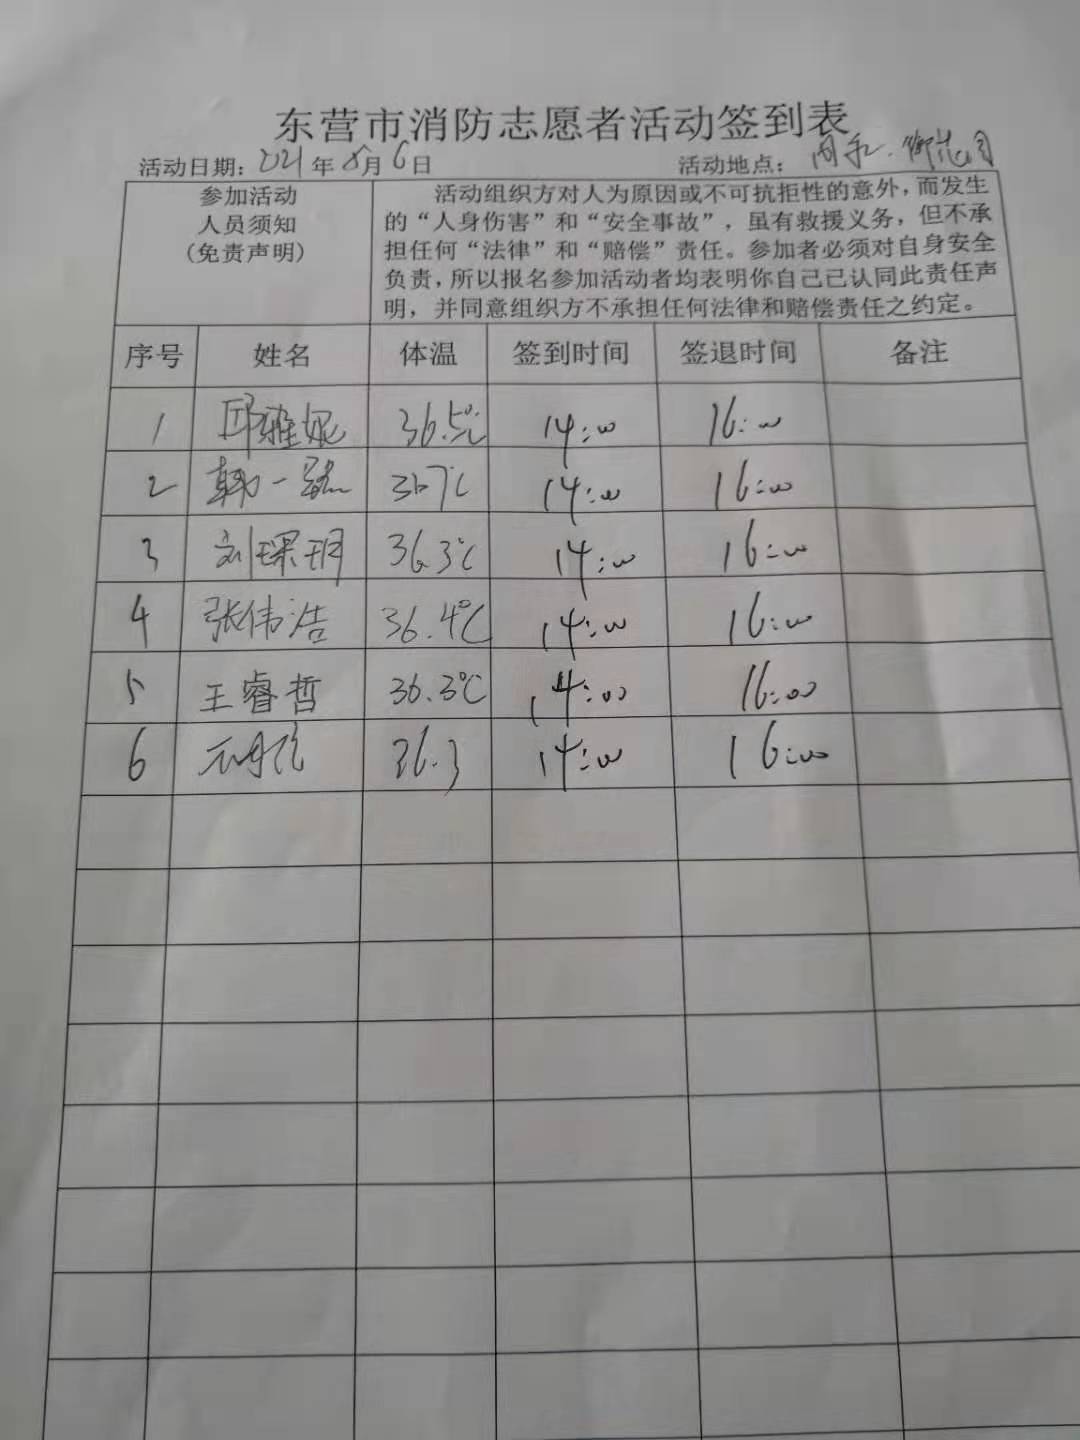 东营市消防志愿者活动签到表
活动日期：2021年8月6日 活动地点：
参加活动
人员须知
(免责声明)
活动组织方对人为原因或不可抗拒性的意外，而发生
的“人身伤害”和“安全事故”，虽有救援义务，但不承
担任何“法律”和“赔偿”责任。参加者必须对自身安全
负责，所以报名参加活动者均表明你自己已认同此责任声
明，并同意组织方不承担任何法律和赔偿责任之约定。
序号 姓名 体温 签到时间 签退时间 备注
1 邱雅妮 36.5℃ 14:00 16:00
2 韩一 36.7℃ 14:00 16:00
3 刘琛玥 36.3℃ 14:00 16:00
4 张伟浩 36.4℃ 14:00 16:00
5 王睿哲 36.3℃ 14:00 16:00
6 36.3 14:00 16:00